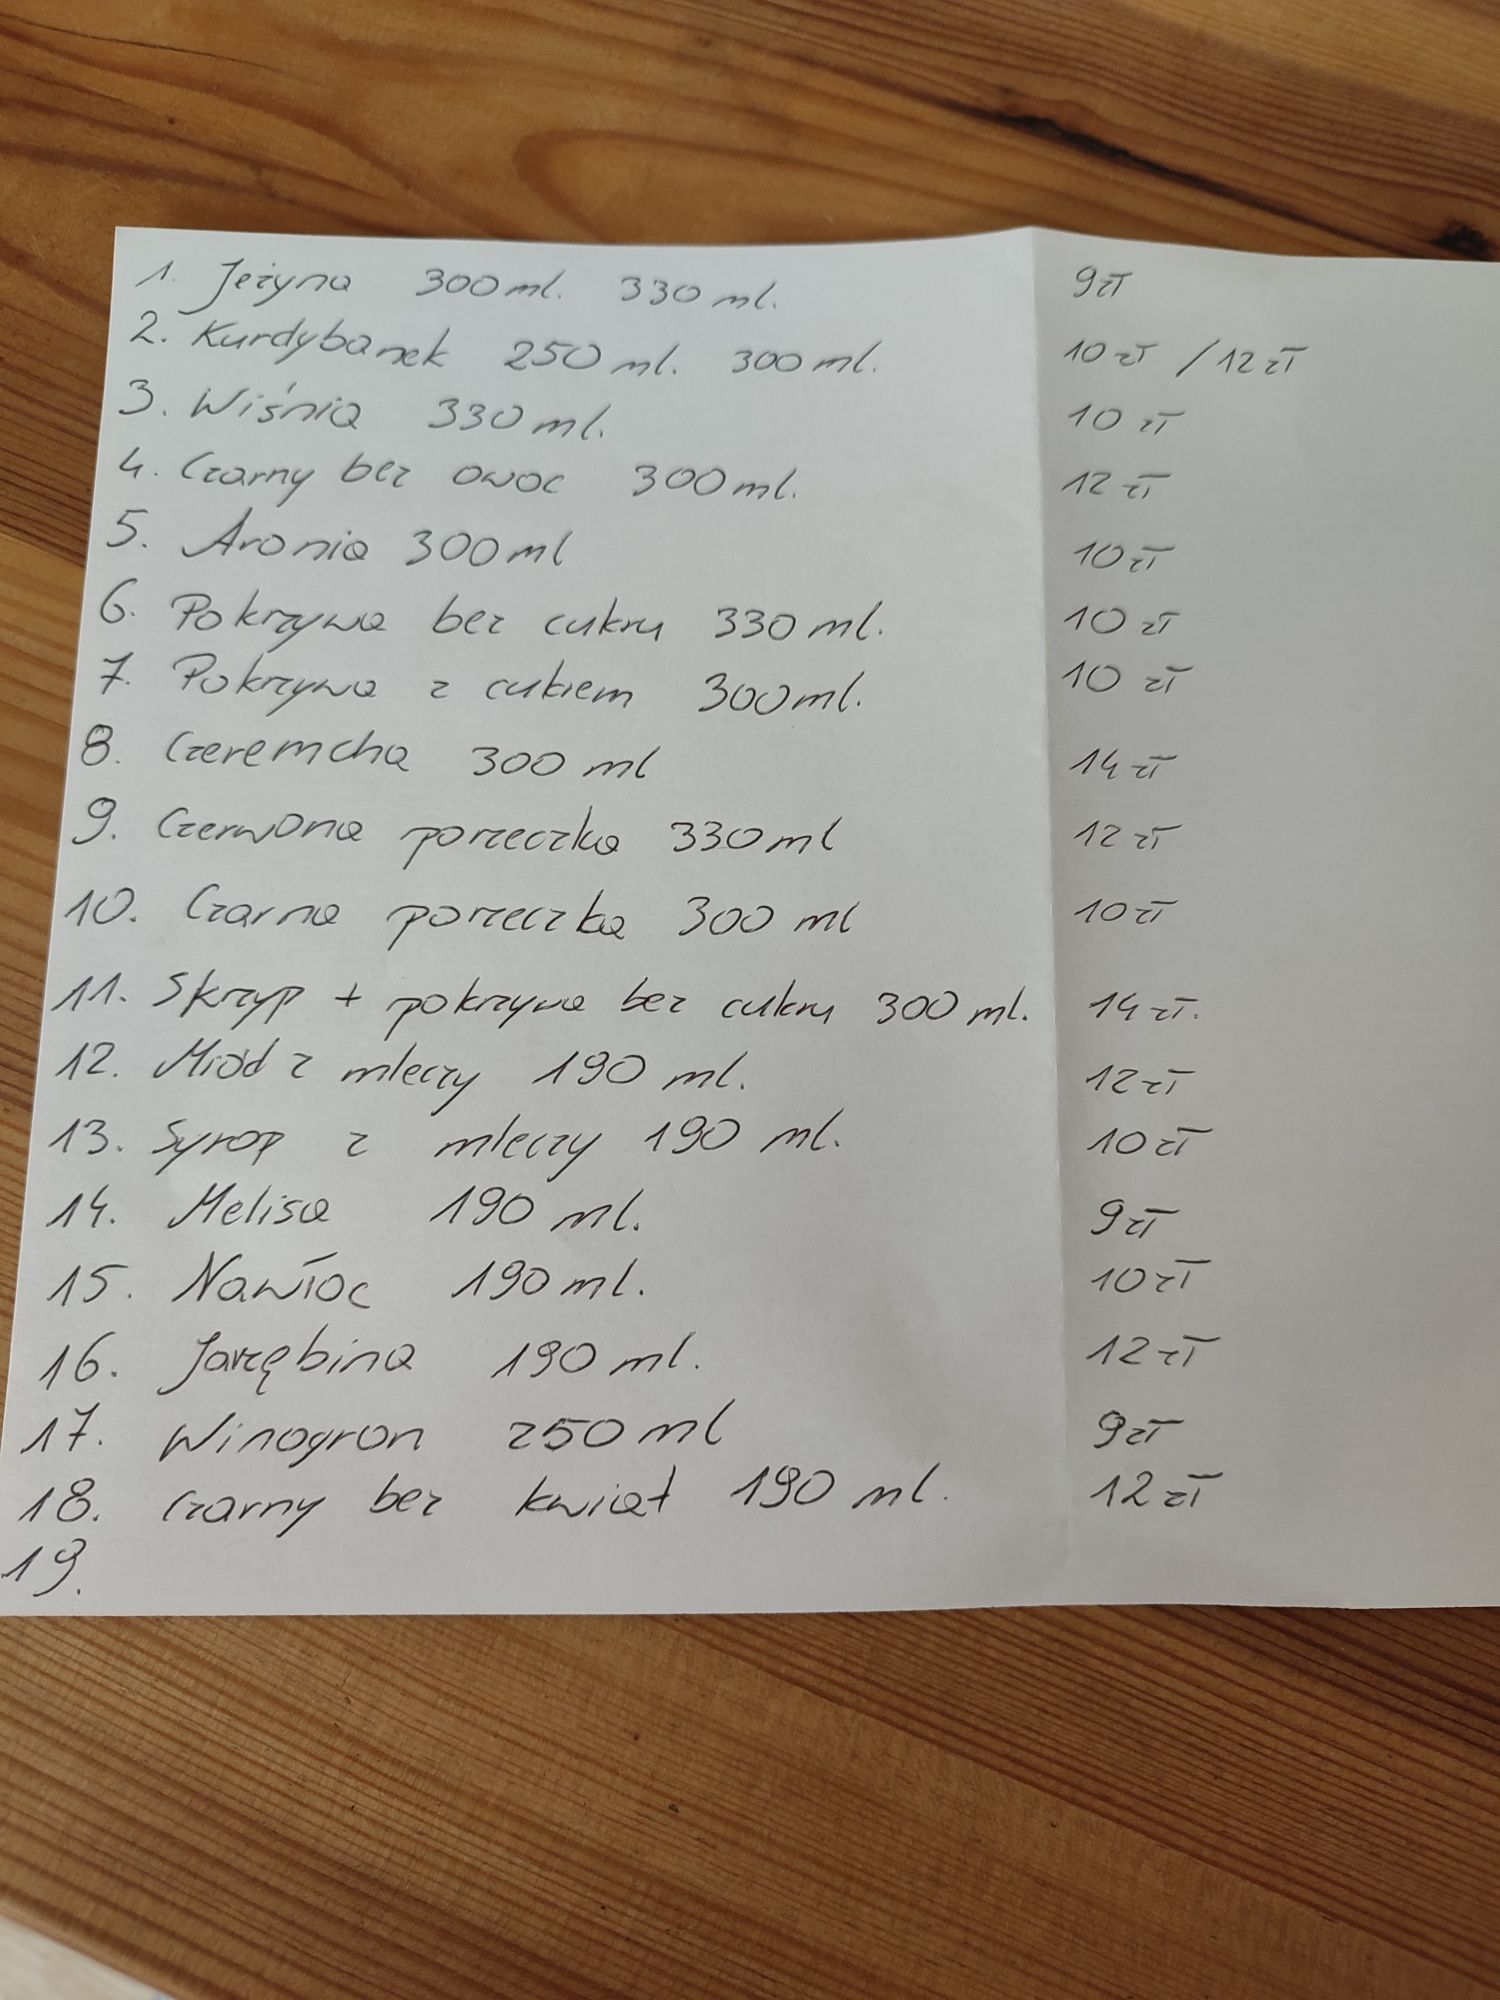 1. Jeżyna 300 ml. 330 ml. 9 zł
2. Kurdybanek 250 ml. 300 ml. 10 zł / 12 zł
3. Wiśnia 330 ml. 10 zł
4. Czarny bez owoc 300 ml. 12 zł
5. Aronia 300 ml 10 zł
6. Pokrzywa bez cukru 330 ml. 10 zł
7. Pokrzywa z cukrem 300 ml. 10 zł
8. Czeremcha 300 ml 14 zł
9. Czerwona porzeczka 330 ml 12 zł
10. Czarna porzeczka 300 ml 10 zł
11. Skrzyp + pokrzywa bez cukru 300 ml. 14 zł.
12. Miód z mleczy 190 ml. 12 zł
13. Syrop z mleczy 190 ml. 10 zł
14. Melisa 190 ml. 9 zł
15. Nawłoc 190 ml. 10 zł
16. Jarzębina 190 ml. 12 zł
17. Winogron 250 ml 9 zł
18. Czarny bez kwiat 190 ml. 12 zł
19.